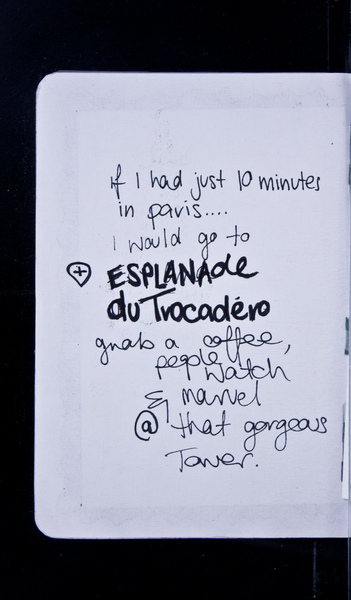 if I had just 10 minutes
in paris....
I would go to
ESPLANADE
du Trocadéro
grab a coffee,
people watch
& marvel
@ that gorgeous
Tower.